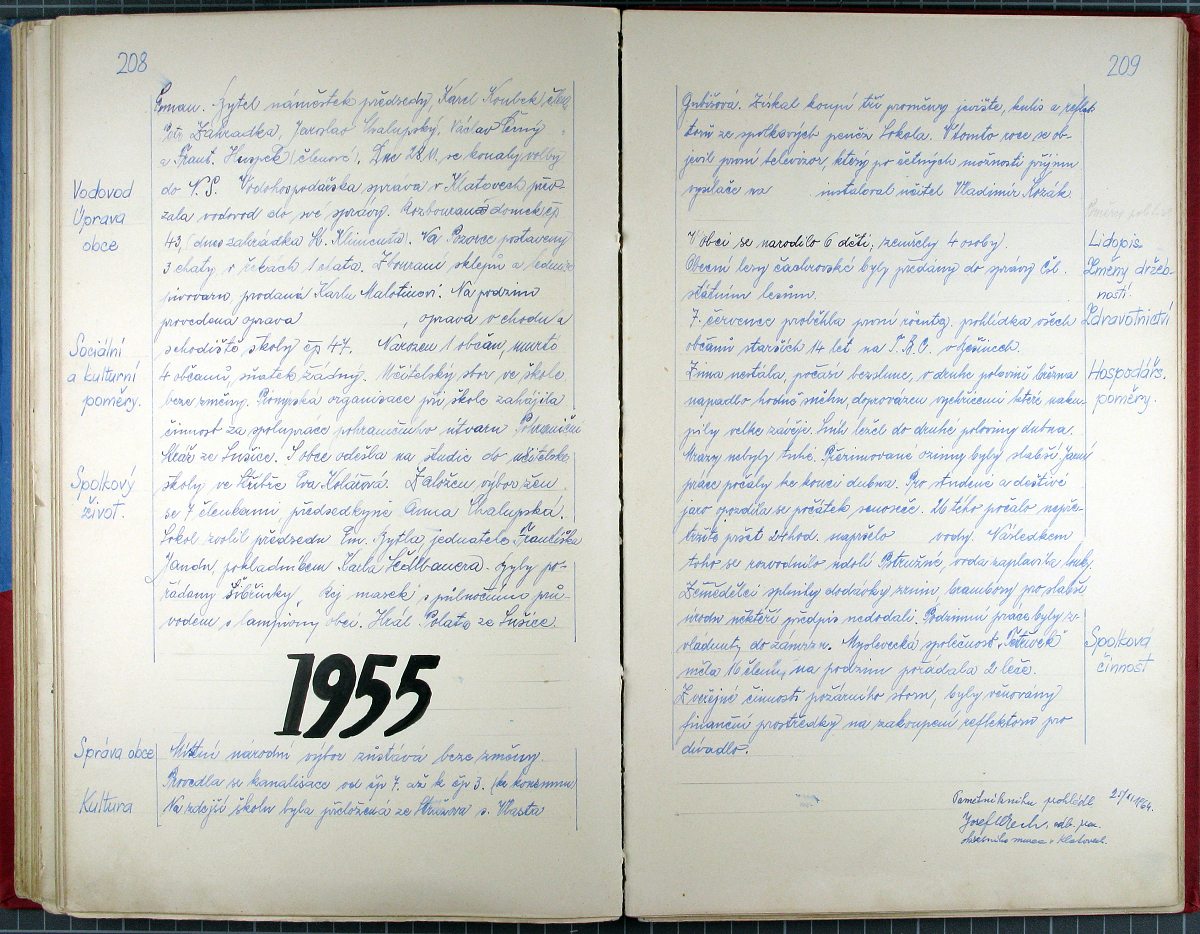 208
náměstek předsedy, Karel Koubek,
Petr Zahradka, Jaroslav Chalupský, Václav Černý
a Frant. (členové). Dne 28.11. se konaly volby
Vodovod
do N.S. Vodohospodářská správa v Klatovech převzala
Úprava
vodovod do své správy. Rozbouraná domek čp
obce
43, (dnes zahrádka Kl. Klimenta). Na Pozorce postaveny
3 chaty, v 1 chata. Zbourání sklepů a
pivovaru prodaná Karlu Malotínovi. Na podzim
provedena oprava , oprava vchodu a
Sociální
schodiště školy čp 47. Narozen 1 občan, umrto
a kulturní
4 občanů, sňatek žádný. Učitelský sbor ve škole
poměry.
beze změny. Pionýrská organisace při škole zahájila
činnost za spolupráce pohraničního útvaru Pohraniční
stráže ze Sušice. Z obce odešla na studie do učitelské
Spolkový
školy ve Stříbře Eva Kolářová. Založen výbor žen
život.
se 7 členkami předsedkyně Anna Chalupská.
Sokol zvolil předsedu Em. Zytla jednatele Františka
Jandu, pokladníkem Karla Sedlbauera. Byly pořádany
Šibřinky. Rej masek s půlnočním průvodem
s lampióny obcí. Hrál Polata ze Sušice.
1955
Správa obce
Místní narodní výbor zůstává beze změny.
Provedla se kanalisace od čp 7. až k čp 3. (ke konsumu)
Kultura
Na zdejší školu byla přeložena ze s. Vlasta
209
Gubišová. Získal koupí tři proměny jeviště, kulis a reflektorů
ze spolkových peněz Sokola. V tomto roce se objevil
první televizor, který po četných možnosti příjmu
vysílače na instaloval učitel Vladimír Kozák.
V obci se narodilo 6 dětí, zemřely 4 osoby.
Lidopis.
Obecní lesy čachrovské byly předány do správy Čsl.
Změny držebností.
státním lesům.
7. července proběhla první röentg. pohlídka všech
Zdravotnictví
občanů starších 14 let na T.B.C. v Ješinech.
Zima nestála, počasí bezslune, v druhé polovině března
Hospodářs.
napadlo hodně sněhu, doprovázen vychřicemi které nakupily
poměry.
velke závěje. Sníh ležel do druhé poloviny dubna.
Mrazy nebyly tuhé. Přezimované ozimy byly slabší. Jarní
práce počaly ke konci dubna. Pro studené a deštivé
jaro opozdila se počátek senoseče. 26tého počalo nepřetržitě
pršet 24hod. napršelo vody. Následkem
toho se rozvodnilo údolí Ostružné, voda zaplavila louky.
Zemědělci splnily dodávky zrnin, brambory pro slabší
úrodu někteří předpis nedodali. Podzimní práce byly zvládnuty
do zámrzu. Myslevecká společnost "Tetřívek"
Spolková
měla 16 členů, na podzim pořádala 2 leče.
činnost
Z veřejné činnosti požárního sboru, byly věnovány
finanční prostředky na zakoupení reflektorů pro
divadlo.
Pamětní knihu prohlédl 25/XI 1964.
Josef
okresního musea v Klatovech.